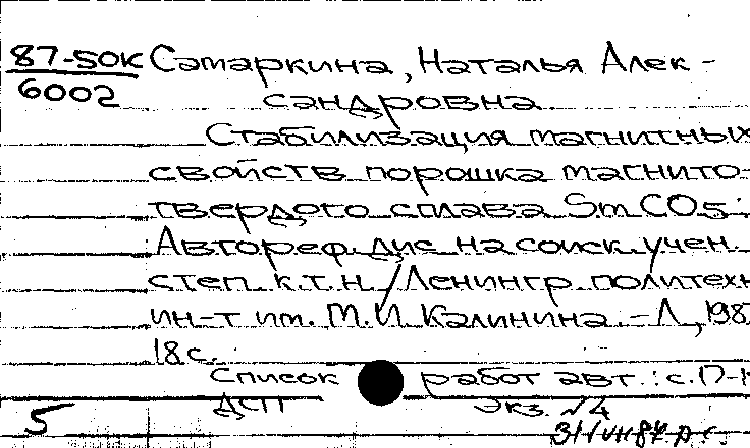 87-50К Сатаркина, Наталья Алек-
6002 сандровна
Стабилизация магнитных
свойств порошка магнито-
твердого сплава SmCO5:
Автореф. дис. на соиск. учен.
степ. к.т.н. / Ленингр. политехн
ин-т им. М.И. Калинина. - Л., 198
18 с.
Список работ авт.: с.
ДСП Экз. №4
5